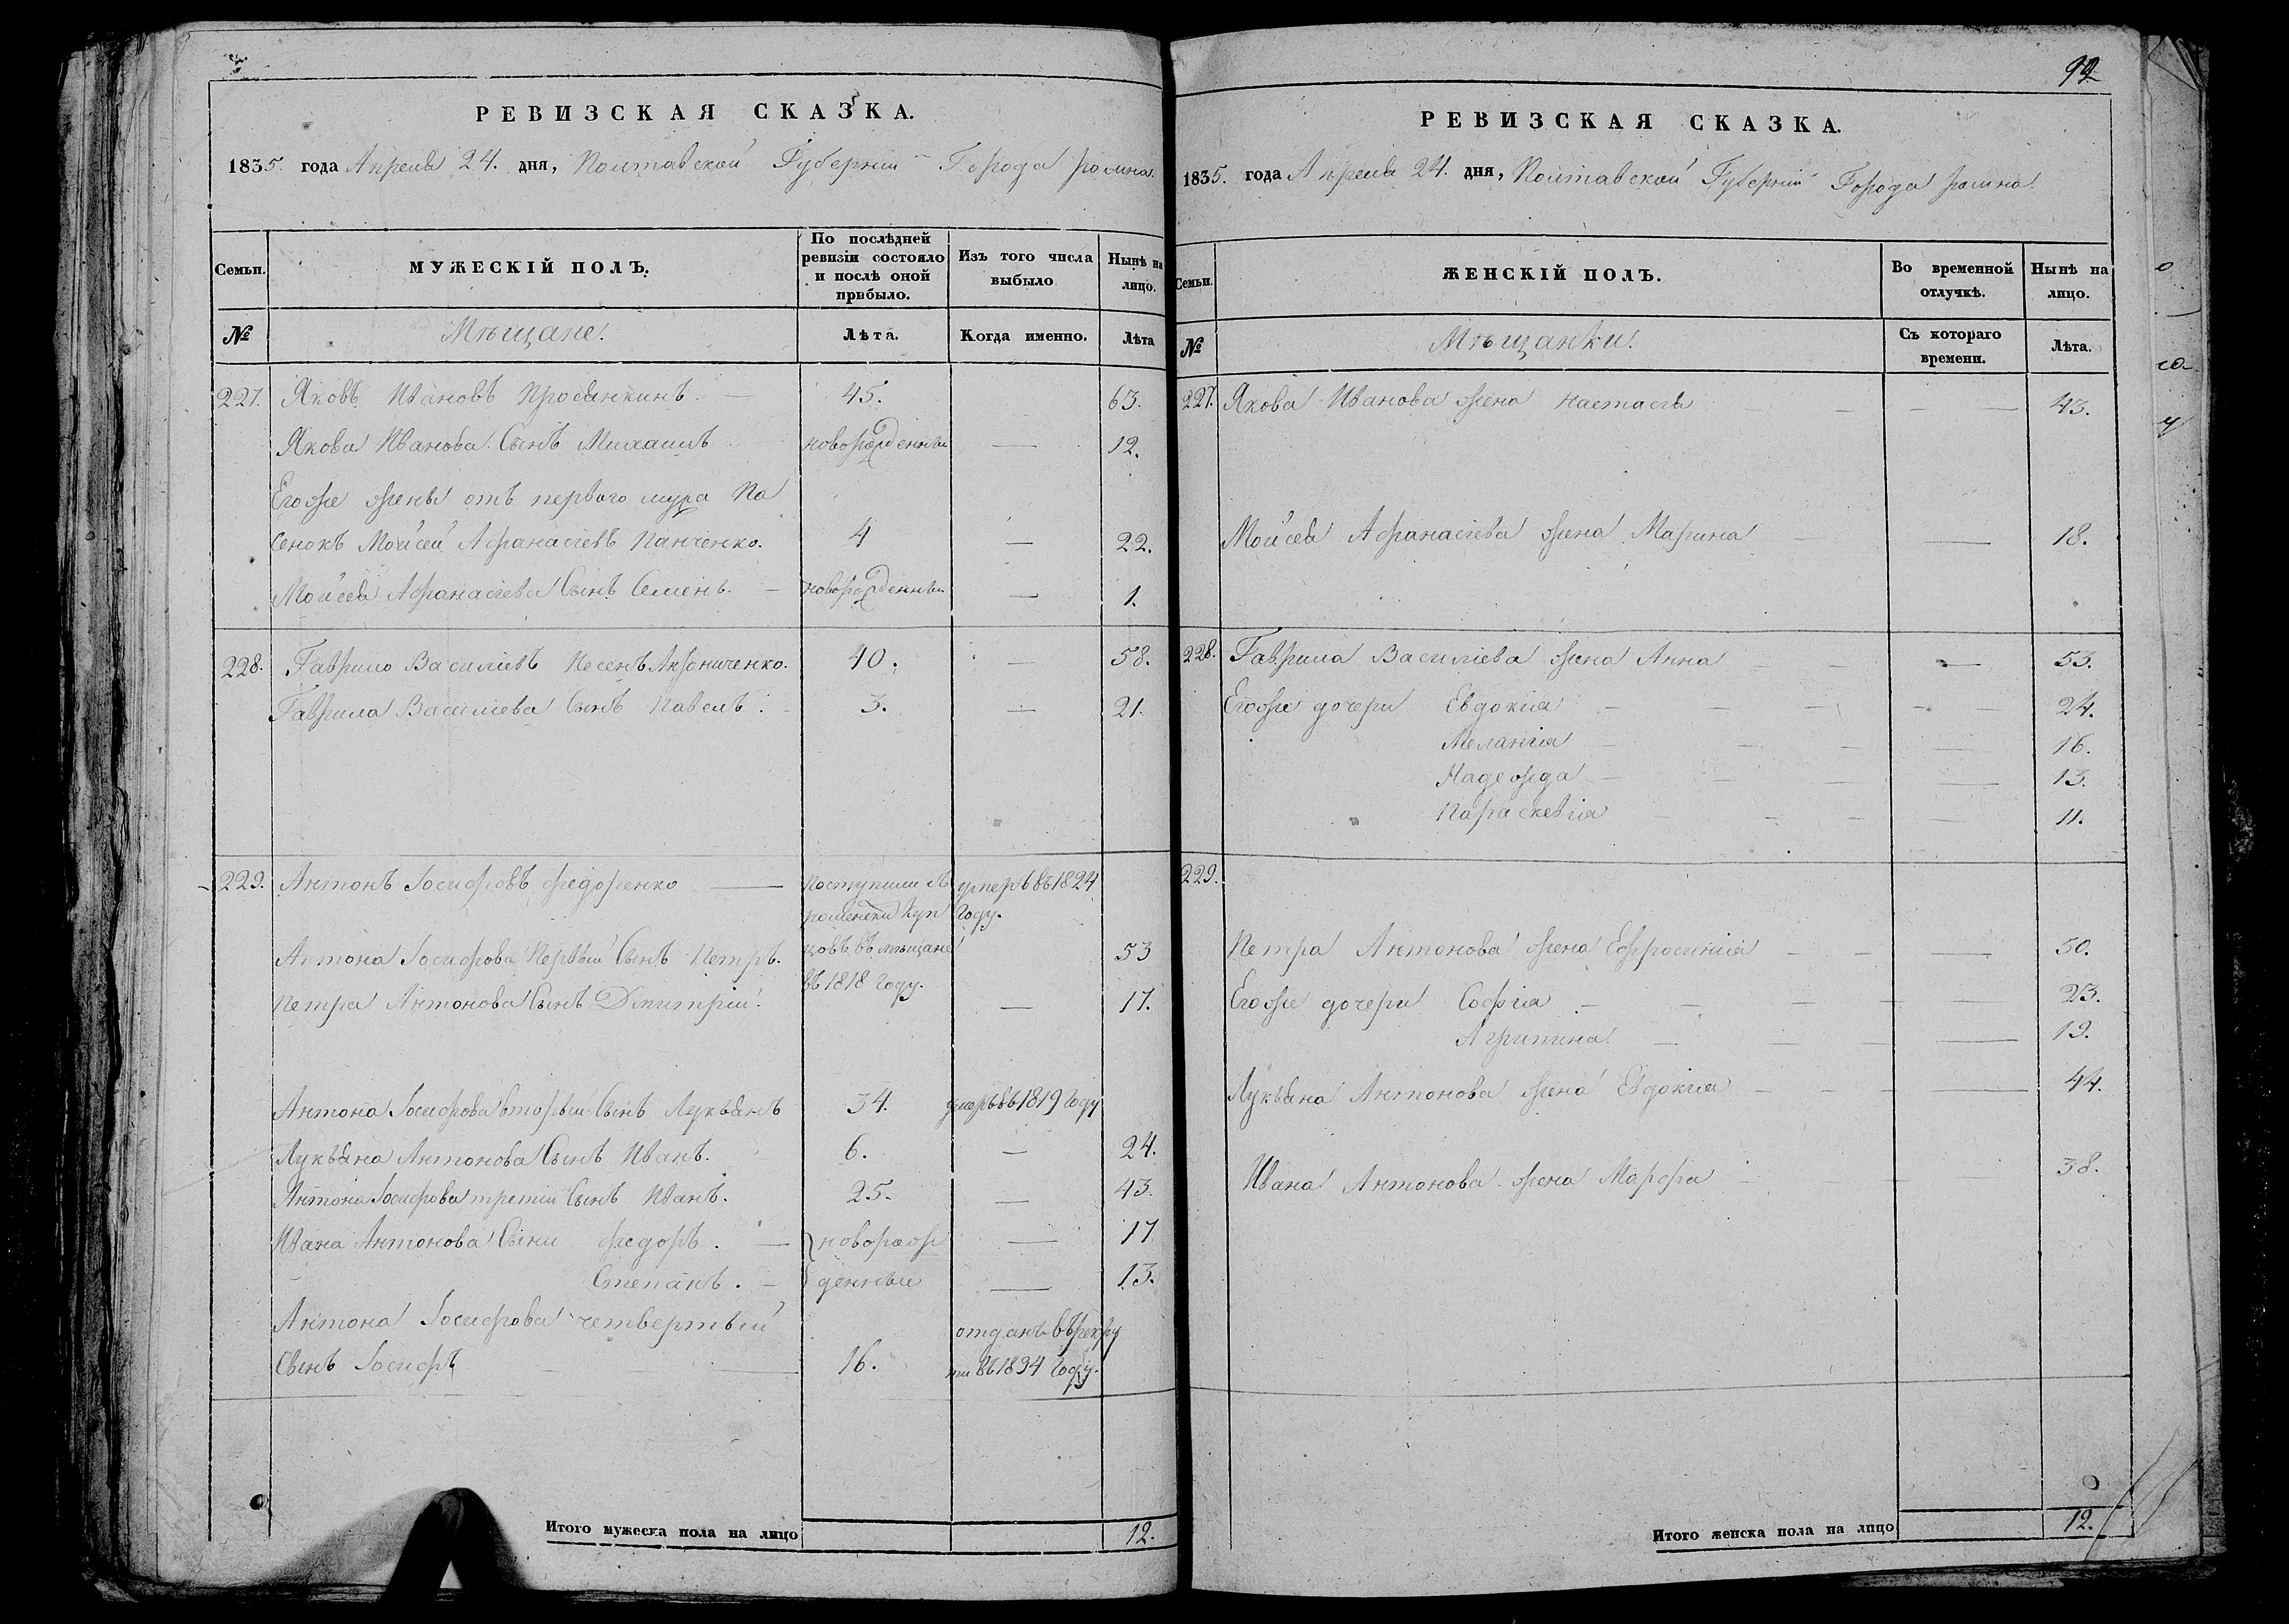 РЕВИЗСКАЯ СКАЗКА.
1835. года Апреля 24. дня, Полтавской Губернии Города ромна.
Семьи.
МУЖЕСКІЙ ПОЛЪ.
По послѣдней ревизіи состояло и послѣ оной прибыло.
Изъ того числа выбыло
Нынѣ на лицо.
№
Мѣщане.
Лѣта.
Когда именно.
Лѣта
227. Яковъ Ивановъ Просянкинъ 45. 63.
Якова Иванова Сынъ Михаилъ новорожденный — 12.
Егоже жены отъ первого мужа Па
сенокъ Мойсей Афанасіевъ Панченко. 4 — 22.
Мойсея Афанасіева Сынъ Семенъ. — новорожденный — 1.
228. Гаврило Василіевъ 40. — 58.
Гаврила Василіева Сынъ Павелъ. 3. — 21.
229. Антонъ Іосифовъ Федоренко — поступили съ умеръ въ 1824
роменски куп году.
Антона Іосифова Первый Сынъ Петръ. цовъ въ мѣщане 53
въ 1818 году.
Петра Антонова Сынъ Дмитрій. — 17.
Антона Іосифова вторый Сынъ Лукьянъ 34. умеръ въ 1819 году
Лукьяна Антонова Сынъ Иванъ. 6. — 24.
Антона Іосифова третій Сынъ Иванъ. 25. — 43.
Ивана Антонова Сыны Федоръ. — новорож — 17
Степанъ. — денные — 13.
Антона Іосифова четвертый
отданъ въ рекру
Сынъ Іосифъ — 16. ты въ 1834 году.
Итого мужеска пола на лицо 12.
92
РЕВИЗСКАЯ СКАЗКА.
1835. года Апреля 24. дня, Полтавской Губерніи Города ромна.
Семьи.
ЖЕНСКІЙ ПОЛЪ.
Во временной отлучкѣ.
Нынѣ на лицо.
№
Мѣщанки.
Съ котораго времени.
Лѣта.
227. Якова Иванова жена Настасія — 43.
Мойсея Афанасіева жена Марина — 18.
228. Гаврила Василіева жена Анна — 53.
Егоже дочери Евдокія — 24.
Меланія — 16.
Надежда — 13.
Параскевія — 11.
229.
Петра Антонова жена Ефросинія — 50.
Егоже дочери Софія — 23.
Агрипина — 19.
Лукьяна Антонова жена Евдокія — 44.
Ивана Антонова жена Марфа — 38.
Итого женска пола на лицо 12.